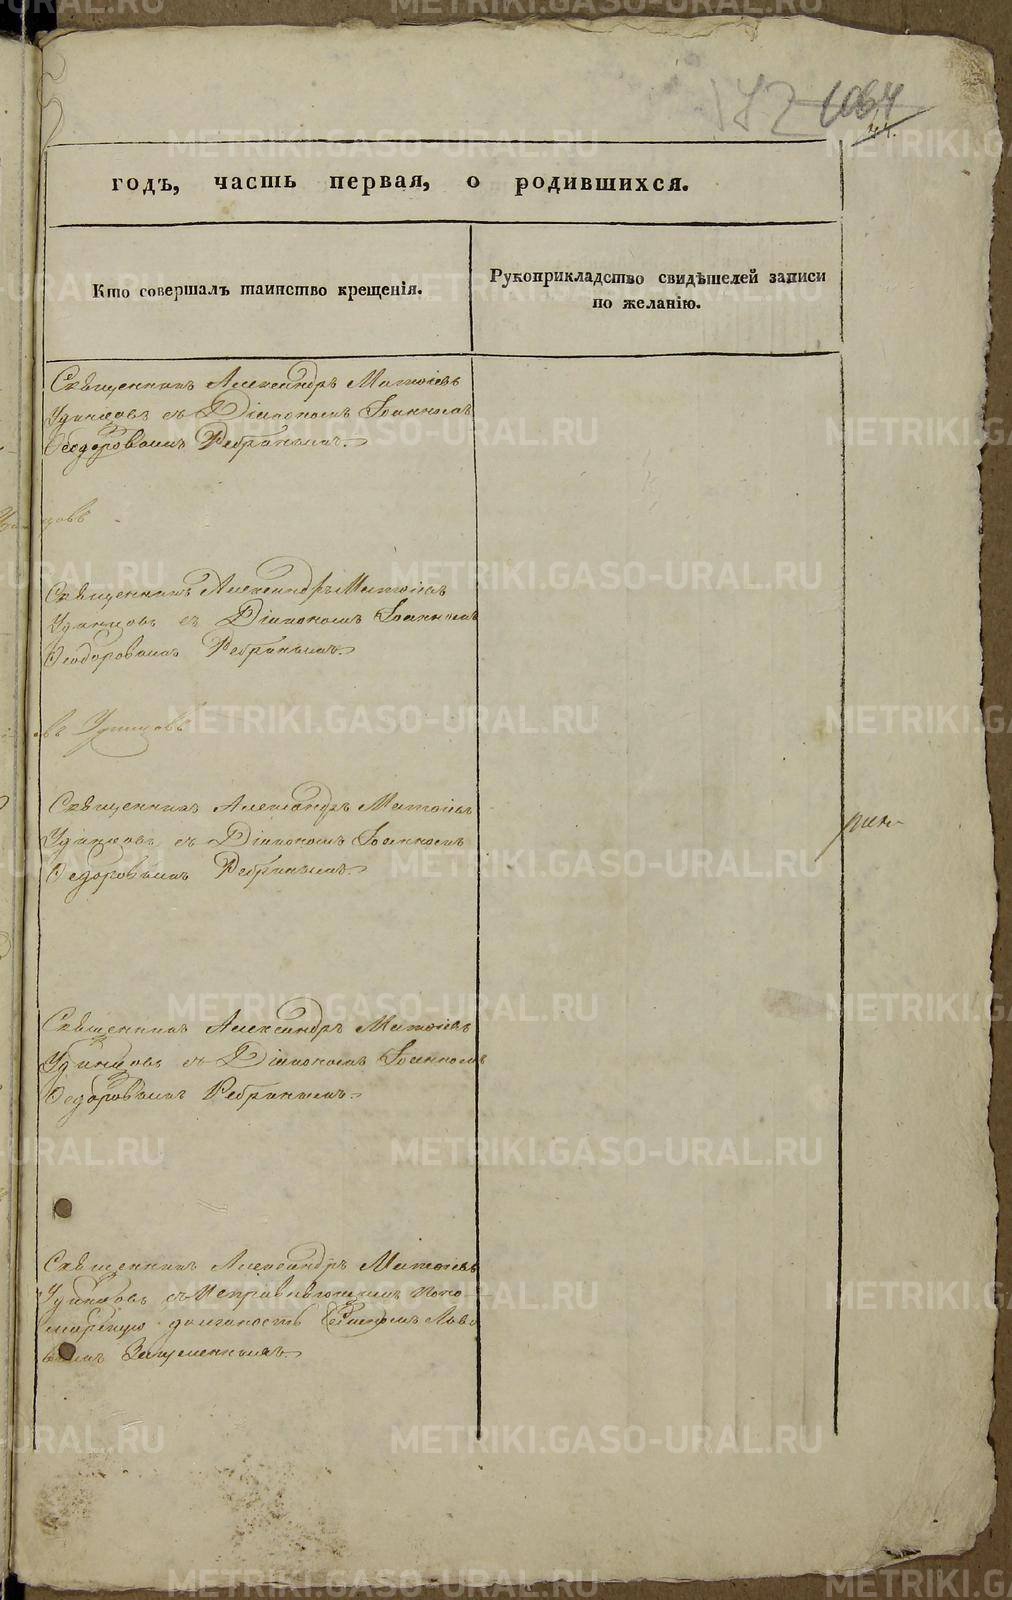 1064
годъ, часть первая, о родившихся.
Кто совершалъ таинство крещенія.
Рукоприкладство свидѣтелей записи
по желанію.
Священникъ Александръ Матѳіевъ
Удинцовъ съ Діакономъ Іоанномъ
Ѳеодоровымъ Ребринымъ.
Священникъ Александръ Матѳіевъ
Удинцовъ съ Діакономъ Іоанномъ
Ѳеодоровымъ Ребринымъ.
въ Удинцовъ
Священникъ Александръ Матѳіевъ
Удинцовъ съ Діакономъ Іоанномъ
Ѳедоровымъ Ребринымъ.
Священникъ Александръ Матѳіевъ
Удинцовъ съ Діакономъ Іоанномъ
Ѳедоровымъ Ребринымъ.
Священникъ Александръ Матѳіевъ
Удинцовъ съ Исправляющимъ Поно-
марскую должность
METRIKI.GASO-URAL.RU